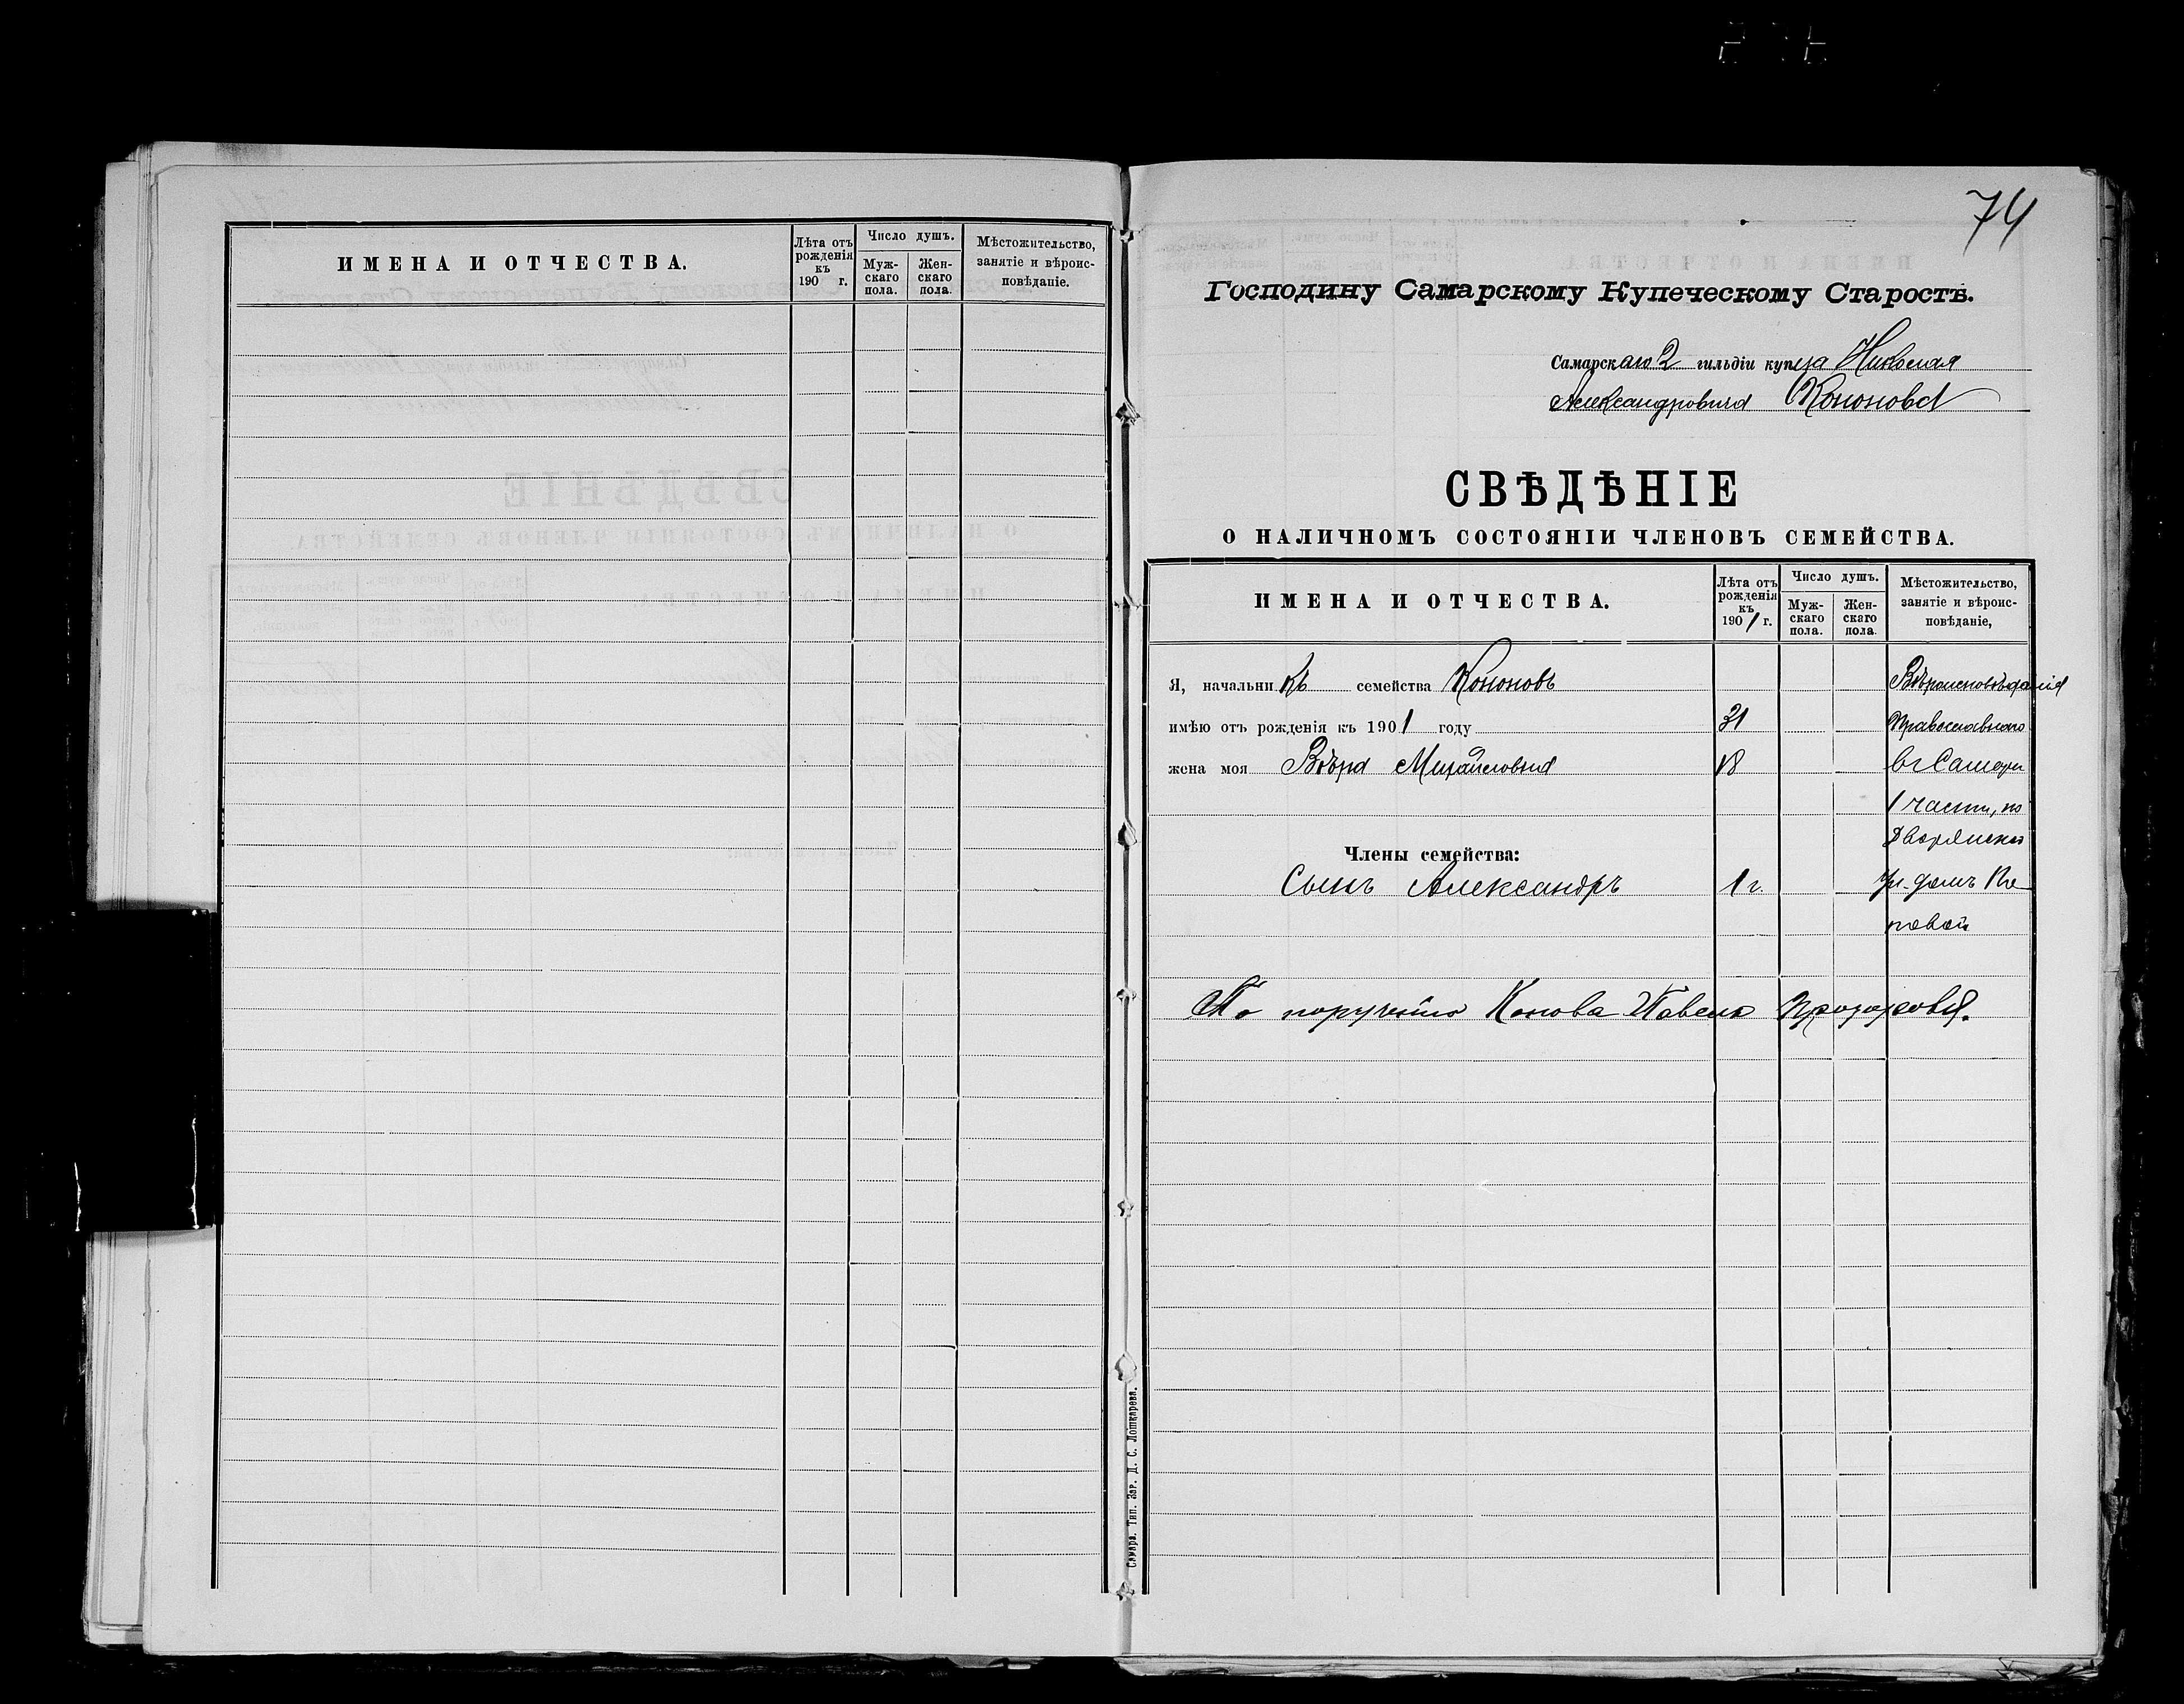 ИМЕНА И ОТЧЕСТВА.
Лѣта отъ
рожденія
къ
190 г.
Число душъ.
Муж-
скаго
пола.
Жен-
скаго
пола.
Мѣстожительство,
занятіе и вѣроис-
повѣданіе.
74
Господину Самарскому Купеческому Старостѣ.
Самарскаго 2 гильдіи купца Николая
Александровича Кононова
СВѢДѢНІЕ
О НАЛИЧНОМЪ СОСТОЯНІИ ЧЛЕНОВЪ СЕМЕЙСТВА.
ИМЕНА И ОТЧЕСТВА.
Лѣта отъ
рожденія
къ
1901 г.
Число душъ.
Муж-
скаго
пола.
Жен-
скаго
пола.
Мѣстожительство,
занятіе и вѣроис-
повѣданіе,
Я, начальникъ семейства Кононовъ Вѣроисповѣданія
имѣю отъ рожденія къ 1901 году 21 Православнаго
жена моя Вѣра Михайловна 18 въ Самарѣ
1 части, по
Дворянской
Члены семейства:
Сынъ Александръ 1 г. Ул. домъ
По порученію Конова Павелъ
Самара. Тип. Зар. Д. С. Лошкарева.